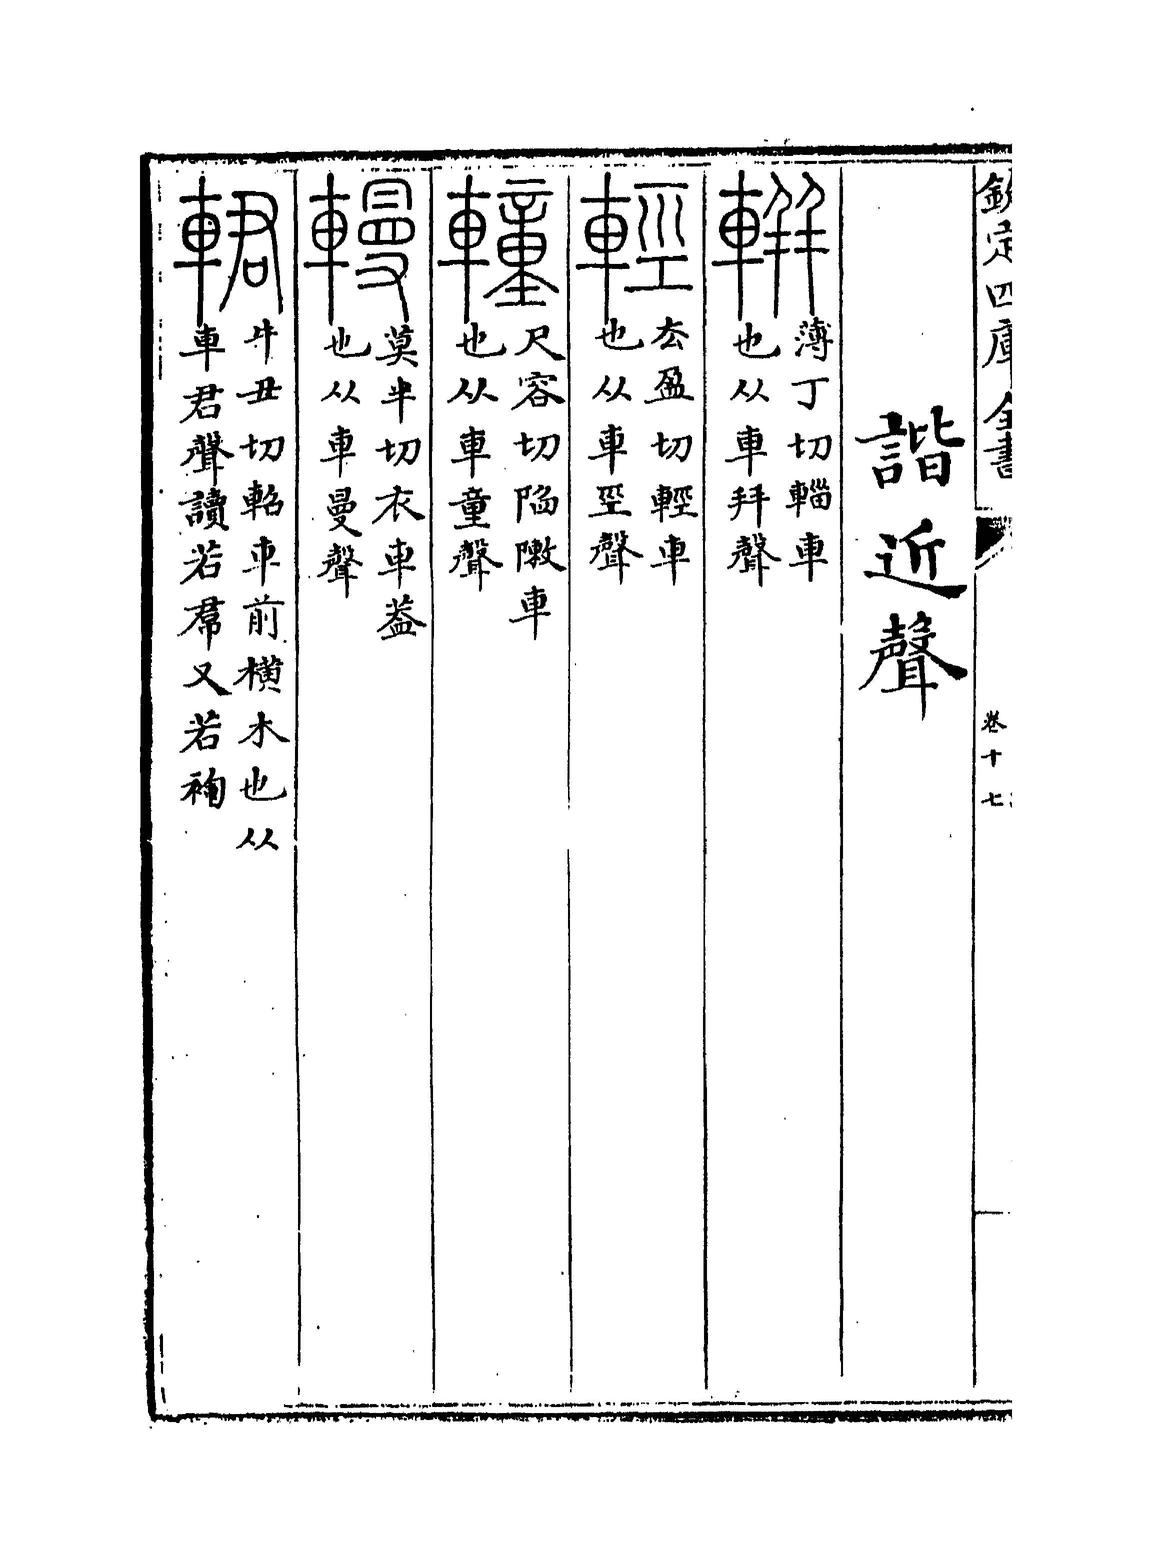 欽定四庫全書 卷十七
諧近聲
軿 薄丁切輜車
也从車幷聲
輕 去盈切輕車
也从車巠聲
䡴 尺容切陷敶車
也从車童聲
䡬 莫半切衣車葢
也从車曼聲
輑 牛尹切軺車前橫木也从
車君聲讀若帬又若